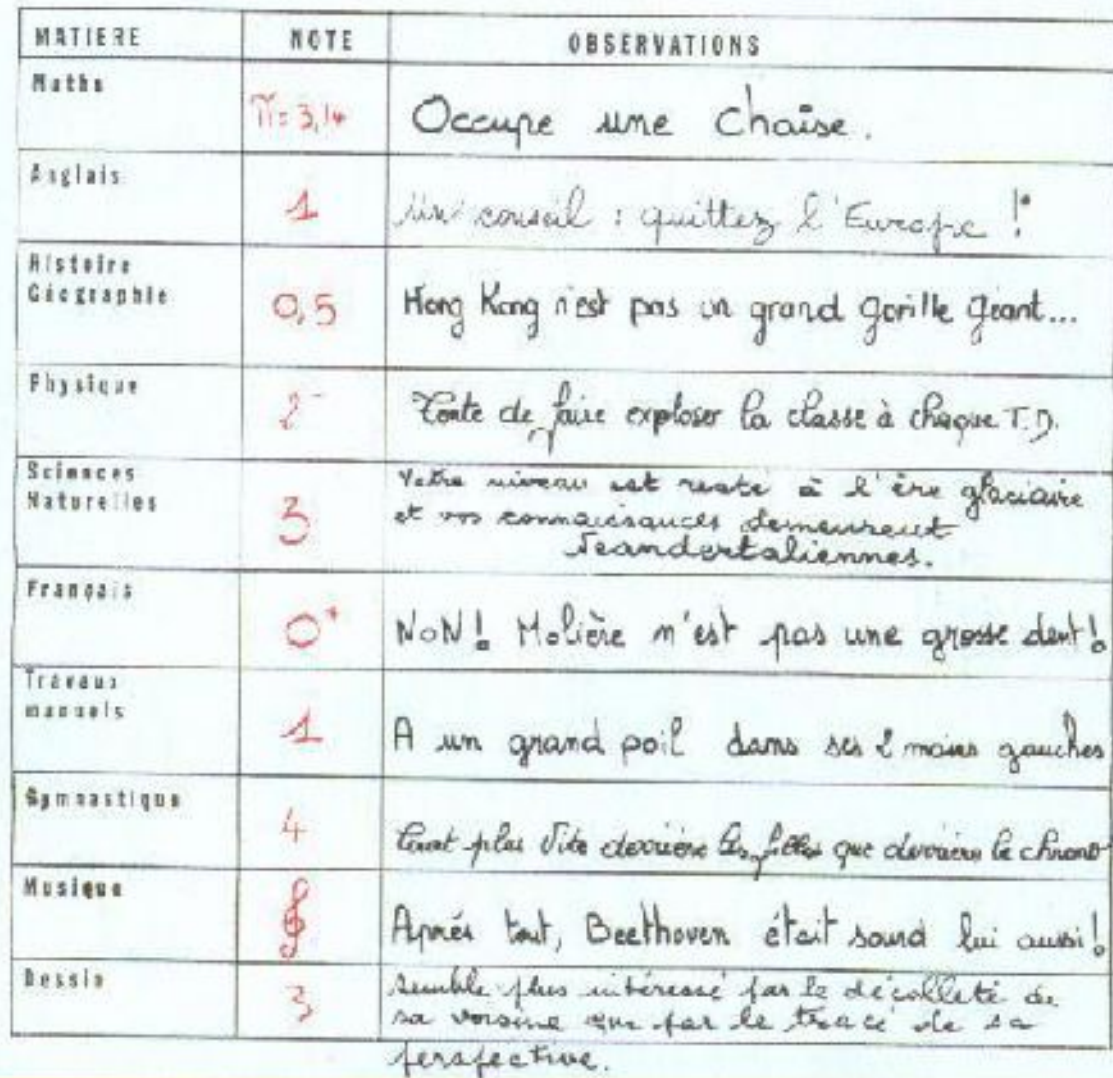 MATIERE NOTE OBSERVATIONS
Maths π=3,14 Occupe une chaise.
Anglais 1 Un conseil : quittez l'Europe !
Histoire
Géographie 0,5 Hong Kong n'est pas un grand gorille géant...
Physique 2- Tente de faire exploser la classe à chaque T.D.
Sciences
Naturelles 3 Votre niveau est resté à l'ère glaciaire
et vos connaissances demeurent
Neandertaliennes.
Français 0+ NON! Molière n'est pas une grosse dent!
Travaux
manuels 1 A un grand poil dans ses 2 mains gauches
Gymnastique 4 Court plus vite derrière les filles que derrière le chrono
Musique Après tout, Beethoven était sourd lui aussi!
Dessin 3 Semble plus intéressé par le décolleté de
sa voisine que par le tracé de sa
perspective.